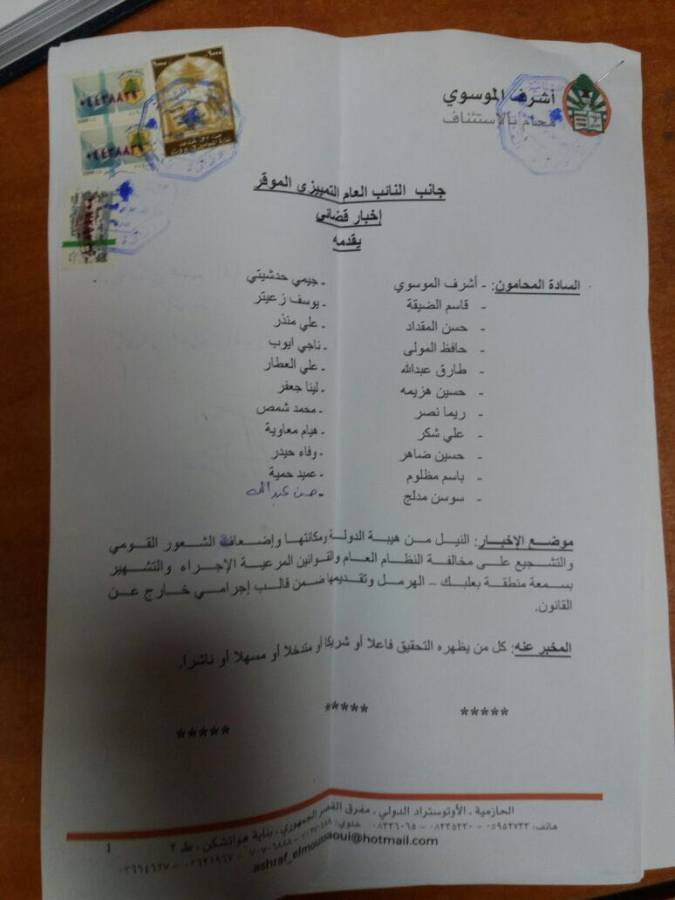 أشرف الموسوي
محام بالاستئناف
٠٤٤٣٨٨٣٤
جانب النائب العام التمييزي الموقر
إخبار قضائي
يقدمه
السادة المحامون: - أشرف الموسوي
- قاسم الضيقة
- حسن المقداد
- حافظ المولى
- طارق عبدالله
- حسين هزيمه
- ريما نصر
- علي شكر
- حسين ضاهر
- باسم مظلوم
- سوسن مدلج
- جيمي حدشيتي
- يوسف زعيتر
- علي منذر
- ناجي ايوب
- علي العطار
- لينا جعفر
- محمد شمص
- هيام معاوية
- وفاء حيدر
- عميد حمية
- حسن عبدالله
موضع الإخبار: النيل من هيبة الدولة ومكانتها وإضعاف الشعور القومي
والتشجيع على مخالفة النظام العام والقوانين المرعية الإجراء والتشهير
بسمعة منطقة بعلبك – الهرمل وتقديمها ضمن قالب إجرامي خارج عن
القانون.
المخبر عنه: كل من يظهره التحقيق فاعلا أو شريكا أو متدخلا أو مسهلا أو ناشرا.
***** ***** *****
الحازمية ، الأوتوستراد الدولي ، مفرق القصر الجمهوري، بناية هواتشكن ، ط ٢
هاتف: ٠٥٩٥٢٧٣٣ - ٠٨٣٣٥٢٣٠ - ٠٨٣٣٦٠٦٥ خليوي:
ashraf_elmoussaoui@hotmail.com
1